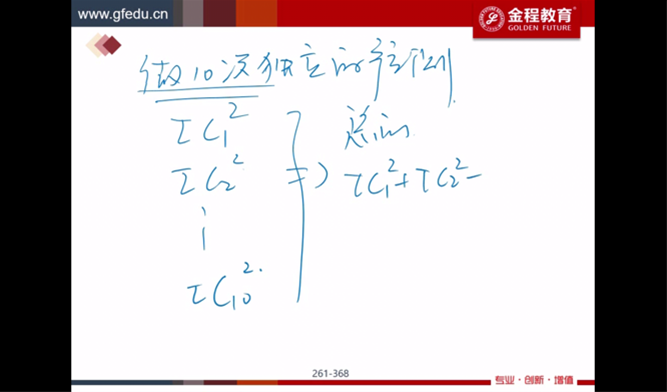 www.gfedu.cn
金程教育
GOLDEN FUTURE
做10次独立的控制
TC₁²
TC₂²
⋮
TC₁₀²
⇒
总的
TC₁²+TC₂²-
261-368
专业·创新·增值